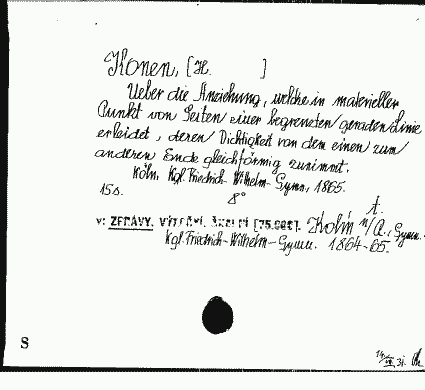 Konen, [H. ]
Ueber die Anziehung, welche in materieller
Punkt von Seiten einer begrenzten geraden Linie
erleidet, deren Dichtigkeit von dem einen zum
anderen Ende gleichförmig zunimmt.
Köln, Kgl. Friedrich-Wilhelm-Gymn., 1865.
15 s. 8°
t.
v: ZPRÁVY. VÝROČNÍ. ŠKOLNÍ Kolín n/R., Gymn.
Kgl. Friedrich-Wilhelm-Gymn. 1864-65.
S